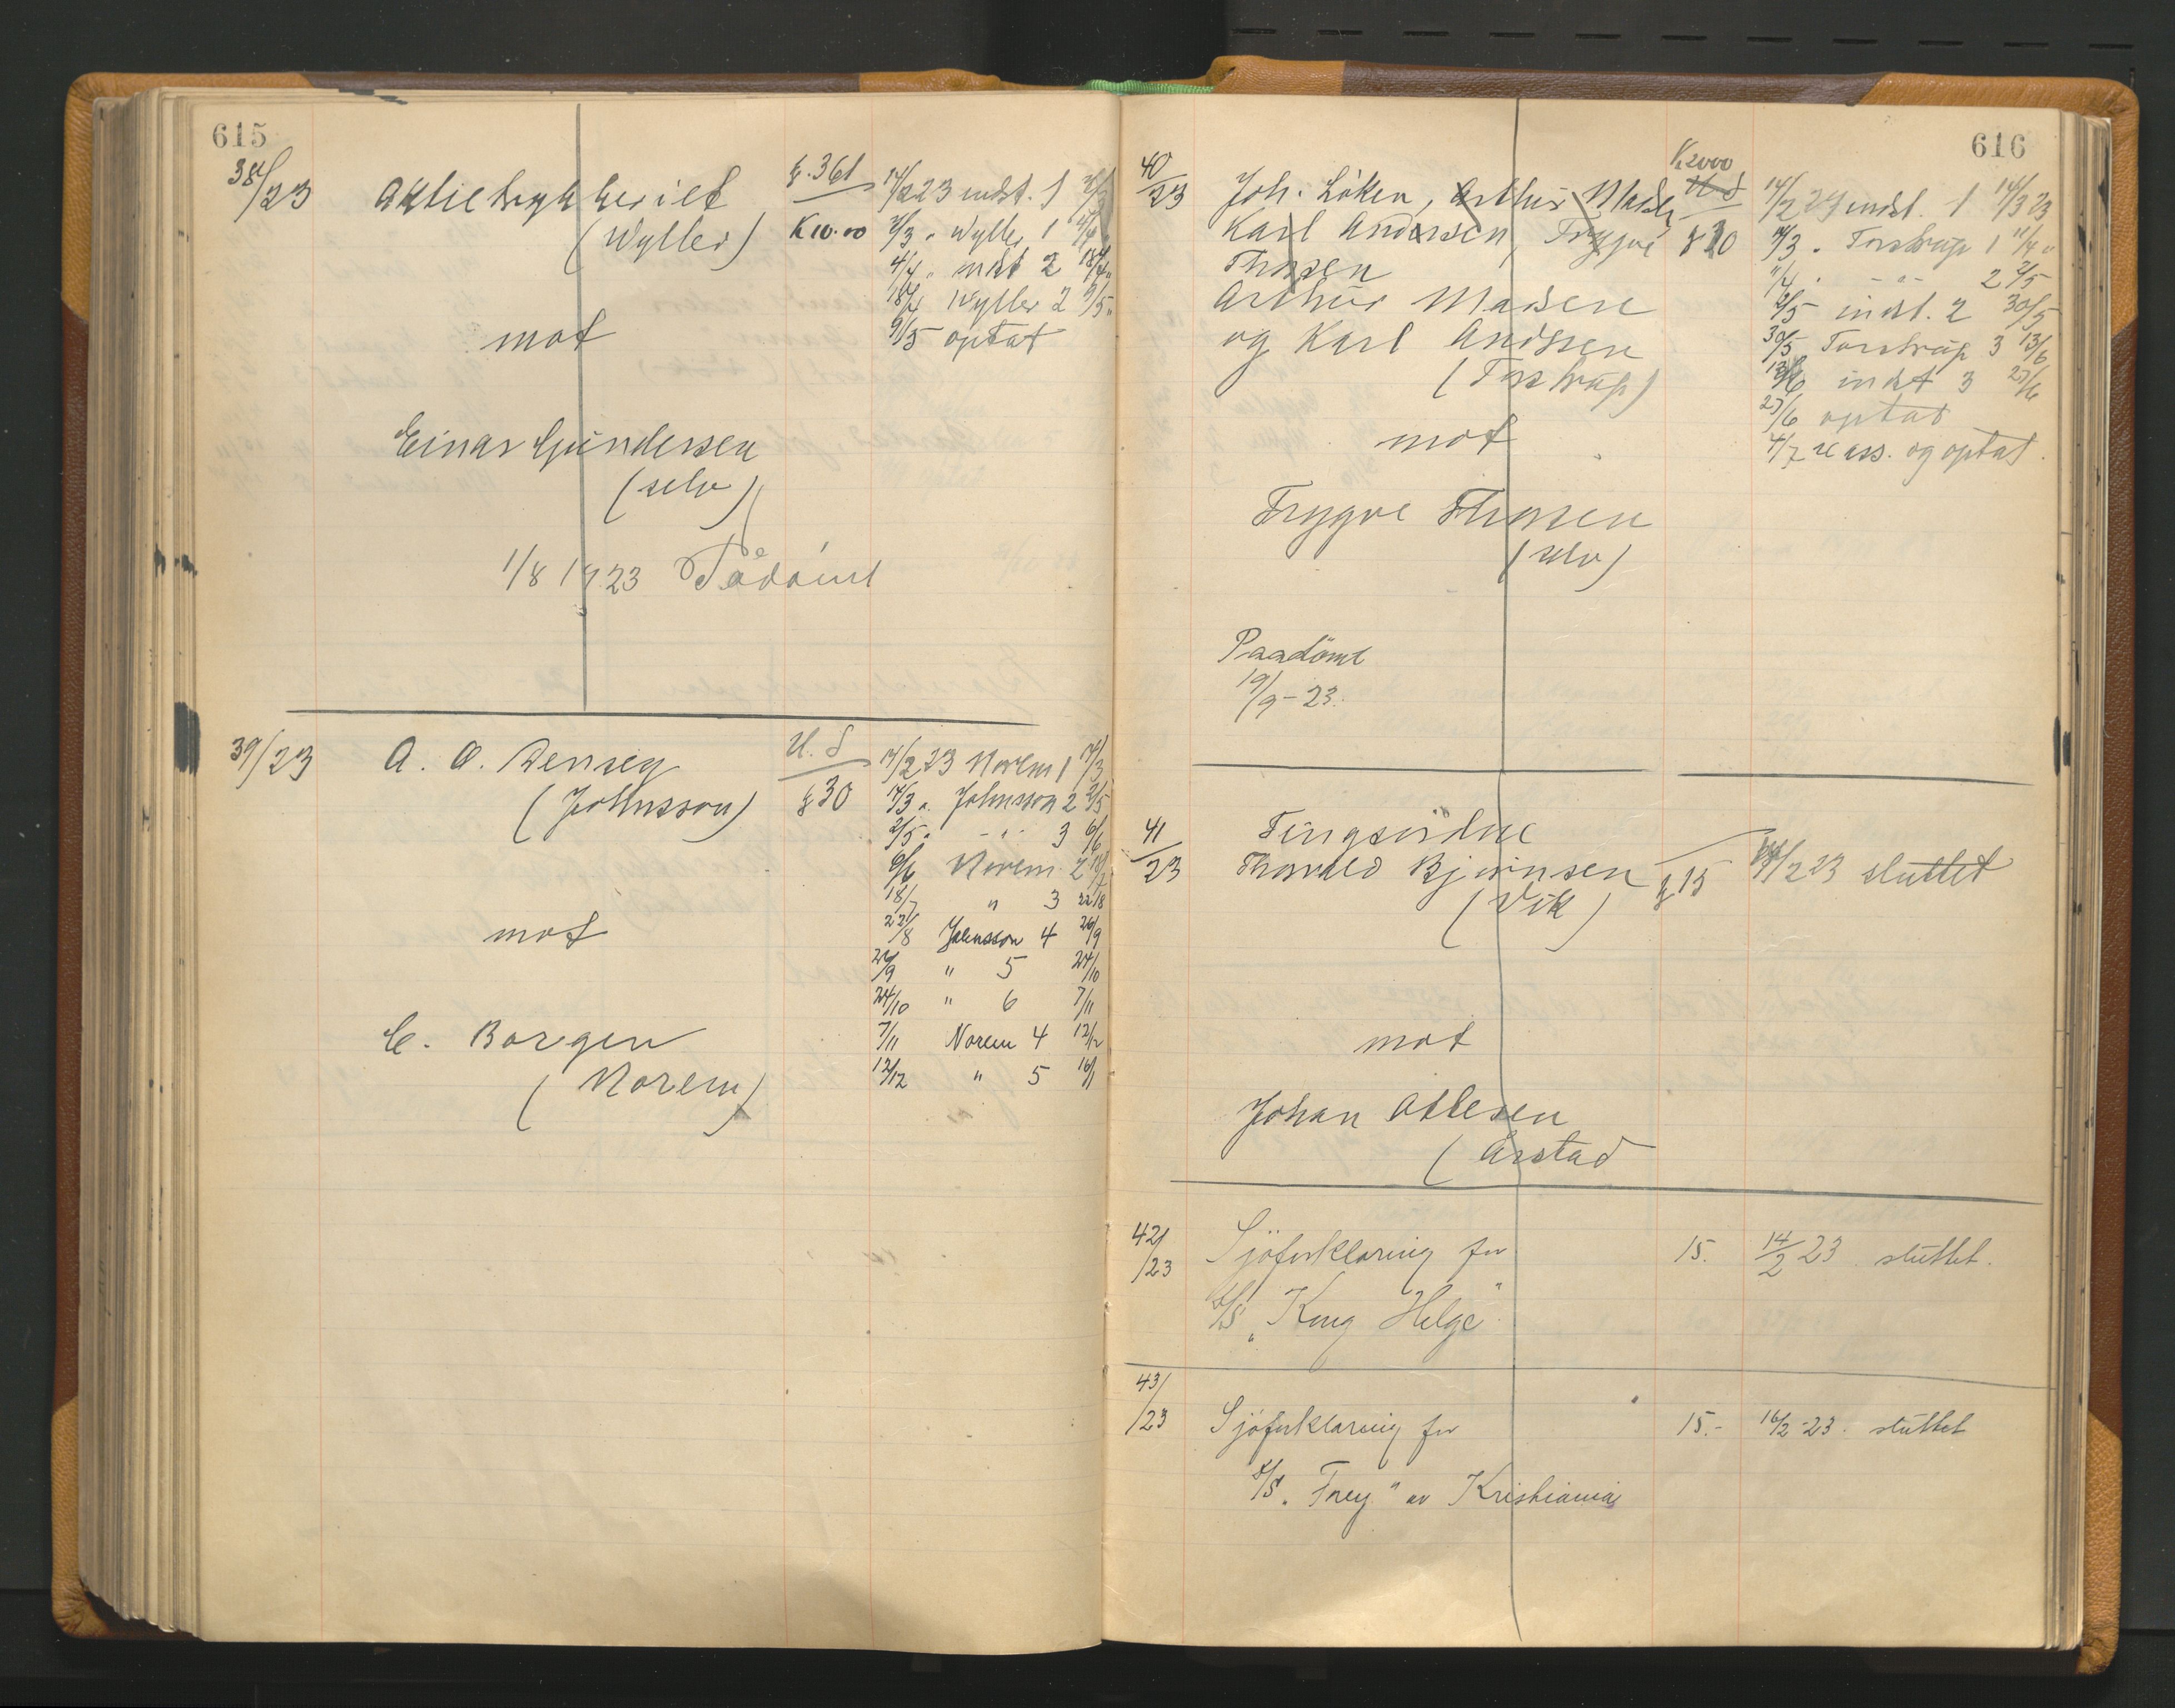 615
38/23 Aktietrykkeriet g. 361 14/2 23 indst. 1
(Wyller) K 10.00 " Wyller 1
4/4 " indst 2 18/4 "
mot 18/4 Wyller 2 9/5 "
9/5 optat
Einar Gundersen
(selv)
1/8 1923 Pådömt
39/23 A. O. U. S 14/2 23 Norem 1 14/3
(Johnsson) g 30 14/3 " Johnsson 2 2/5
2/5 " - " - 3 6/6
6/6 Norem 2 18/7
18/7 " 3 22/8
mot 22/8 Johnsson 4 26/9
26/9 " 5 24/10
24/10 " 6 7/11
C. Borgen 7/11 Norem 4 12/12
(Norem) 12/12 " 5 16/1
616
40/23 Joh. Löken, Arthur Madsen K 2000 U S 14/2 23 indst. 1 14/3 23
Karl Andersen, Trygve g 30 14/3 " Torstrup 1 11/4 "
Thosen 11/4 " - " - 2 2/5
Arthur Madsen 2/5 indst. 2 30/5
og Karl Andersen 30/5 Torstrup 3 13/6
(Torstrup) 13/6 indst 3 27/6
27/6 optat
mot 4/7 reass. og optat.
Trygve Thosen
(selv)
Paadömt
19/9-23.
41/23 Tingsvidne
Thorvald Bjørnsen g 15 14/2 23 sluttet
(Vik)
mot
Johan Atlesen
(Årstad
42/23 Sjöforklaring for 15. 14/2 23 sluttet.
S/S „Kong Helge"
43/23 Sjöforklaring for 15.- 16/2-23. sluttet
S/S „Frey" av Kristiania